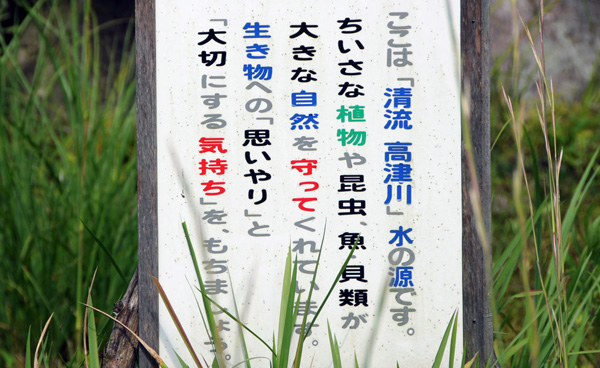 ここは「清流 高津川」水の源です。
ちいさな植物や昆虫、魚・貝類が
大きな自然を守ってくれています。
生き物への「思いやり」と
「大切にする気持ち」を、もちましょう。